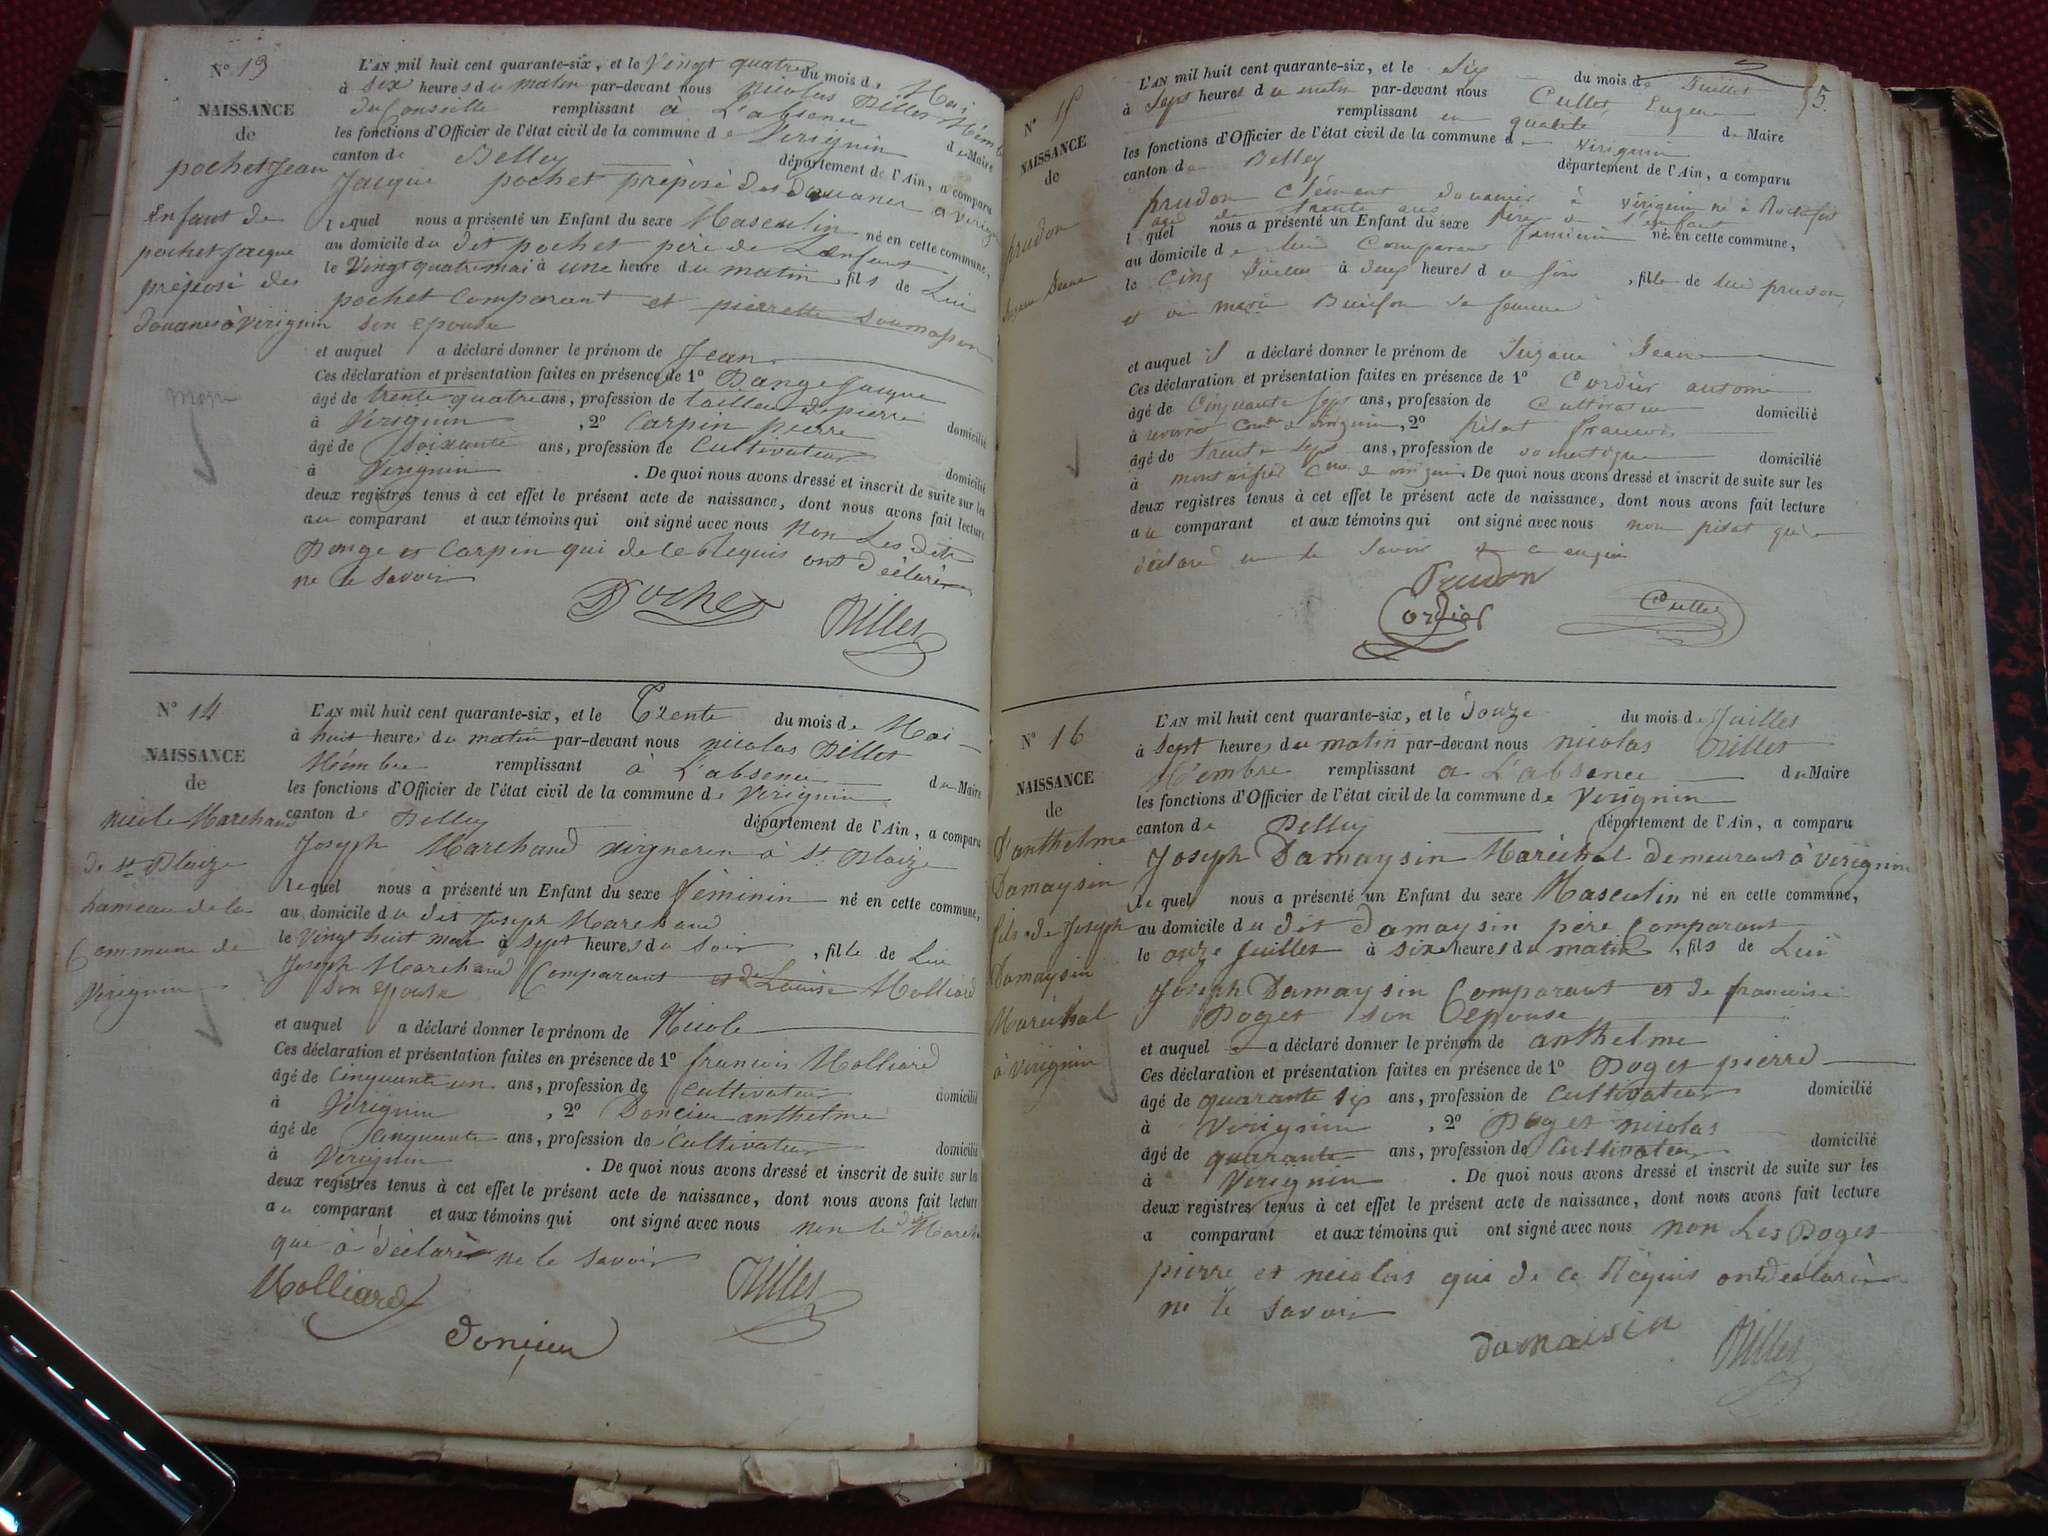 N° 13
NAISSANCE
de
pochet Jean
Enfant de
pochet jacque
préposé des
douanes à virignin
mort
L'AN mil huit cent quarante-six, et le Vingt quatre du mois de Mai
à six heures du matin par-devant nous Nicolas Billet Memb
du Conseille remplissant à L'absence du Maire
les fonctions d'Officier de l'état civil de la commune de Virignin
canton de Belley département de l'Ain, a comparu
Jacque pochet préposé des douanes a virignin
lequel nous a présenté un Enfant du sexe Masculin né en cette commune,
au domicile du dit pochet père de Lenfant
le Vingt quatre mai à une heure du matin, fils de Lui
pochet comparant et pierrette
son epouse
et auquel a déclaré donner le prénom de Jean
Ces déclaration et présentation faites en présence de 1° Dange Jacque
âgé de trente quatre ans, profession de tailleur de pierre domicilié
à Virignin, 2° Carpin pierre
âgé de Soixante ans, profession de Cultivateur domicilié
à Virignin. De quoi nous avons dressé et inscrit de suite sur les
deux registres tenus à cet effet le présent acte de naissance, dont nous avons fait lecture
au comparant et aux témoins qui ont signé avec nous non Les dits
Dange et Carpin qui de ce Requis ont déclaré
ne le savoir
Pochet
Billet
N° 14
NAISSANCE
de
nicole Marchand
de St Blaize
hameau de la
Commune de
Virignin
L'AN mil huit cent quarante-six, et le Trente du mois de Mai
à huit heures du matin par-devant nous nicolas Billet
Membre remplissant à L'absence du Maire
les fonctions d'Officier de l'état civil de la commune de Virignin
canton de Belley département de l'Ain, a comparu
Joseph Marchand vigneron à St Blaize
lequel nous à présenté un Enfant du sexe féminin né en cette commune,
au domicile du dit Joseph Marchand
le Vingt huit mai à sept heures du soir, fille de Lui
Joseph Marchand Comparant et de Louise Molliard
son epouse
et auquel a déclaré donner le prénom de Nicole
Ces déclaration et présentation faites en présence de 1° francois Molliard
âgé de Cinquante un ans, profession de cultivateur domicilié
à Virignin, 2° Doncieu anthelme
âgé de Cinquante ans, profession de Cultivateur domicilié
à Virignin. De quoi nous avons dressé et inscrit de suite sur les
deux registres tenus à cet effet le présent acte de naissance, dont nous avons fait lecture
au comparant et aux témoins qui ont signé avec nous non le dt March
qui à déclaré ne le savoir
Molliard
Doncieu
Billet
5
N° 15
NAISSANCE
de
prudon
Suzane Jeane
L'AN mil huit cent quarante-six, et le Six du mois de Juillet
à Sept heures du matin par-devant nous Cullet Eugene
remplissant en qualité de Maire
les fonctions d'Officier de l'état civil de la commune de Virignin
canton de Belley département de l'Ain, a comparu
prudon Clément douanier à virignin né à Rochefort
agé de trente ans père de l'enfant
lequel nous a présenté un Enfant du sexe féminin né en cette commune,
au domicile de lui Comparant
le Cinq Juillet à deux heures du soir, fille de lui prudon
et de marie sa femme
et auquel il a déclaré donner le prénom de Suzane Jeane
Ces déclaration et présentation faites en présence de 1° Cordier antoine
âgé de Cinquante sept ans, profession de Cultivateur domicilié
à Comne de Virignin, 2° pilat francois
âgé de trente sept ans, profession de domicilié
à Cme de virignin. De quoi nous avons dressé et inscrit de suite sur les
deux registres tenus à cet effet le présent acte de naissance, dont nous avons fait lecture
au comparant et aux témoins qui ont signé avec nous non pilat qui a
déclaré ne le savoir de ce enquis
Prudon
Cordier
Cullet
N° 16
NAISSANCE
de
D'anthelme
Damaysin
fils de Joseph
Damaysin
Maréchal
à virignin
L'AN mil huit cent quarante-six, et le Douze du mois de Juillet
à Sept heures du matin par-devant nous nicolas Billet
Membre remplissant a L'absence du Maire
les fonctions d'Officier de l'état civil de la commune de Virignin
canton de Belley département de l'Ain, a comparu
Joseph Damaysin Maréchal demeurant à virignin
lequel nous a présenté un Enfant du sexe Masculin né en cette commune,
au domicile du dit damaysin père Comparant
le onze Juillet à six heures du matin, fils de Lui
Joseph Damaysin Comparant et de francoise
Doget son Epouse
et auquel a déclaré donner le prénom de anthelme
Ces déclaration et présentation faites en présence de 1° Doget pierre
âgé de quarante six ans, profession de Cultivateur domicilié
à Virignin, 2° Doget nicolas
âgé de quarante ans, profession de Cultivateur domicilié
à Virignin. De quoi nous avons dressé et inscrit de suite sur les
deux registres tenus à cet effet le présent acte de naissance, dont nous avons fait lecture
a comparant et aux témoins qui ont signé avec nous non Les Doget
pierre et nicolas qui de ce Réquis ont déclaré
ne le savoir
damaisin
Billet